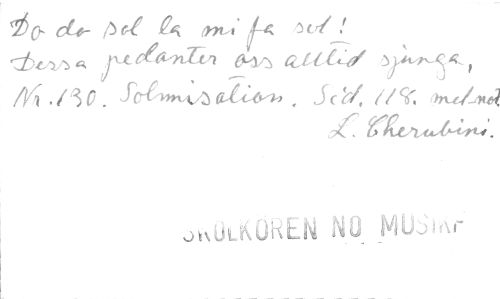 Do do sol la mi fa sol!
Dessa pedanter oss alltid sjunga,
Nr. 130. Solmisation. Sid. 118. med not
L. Cherubini.
SKOLKOREN NO MUSIK